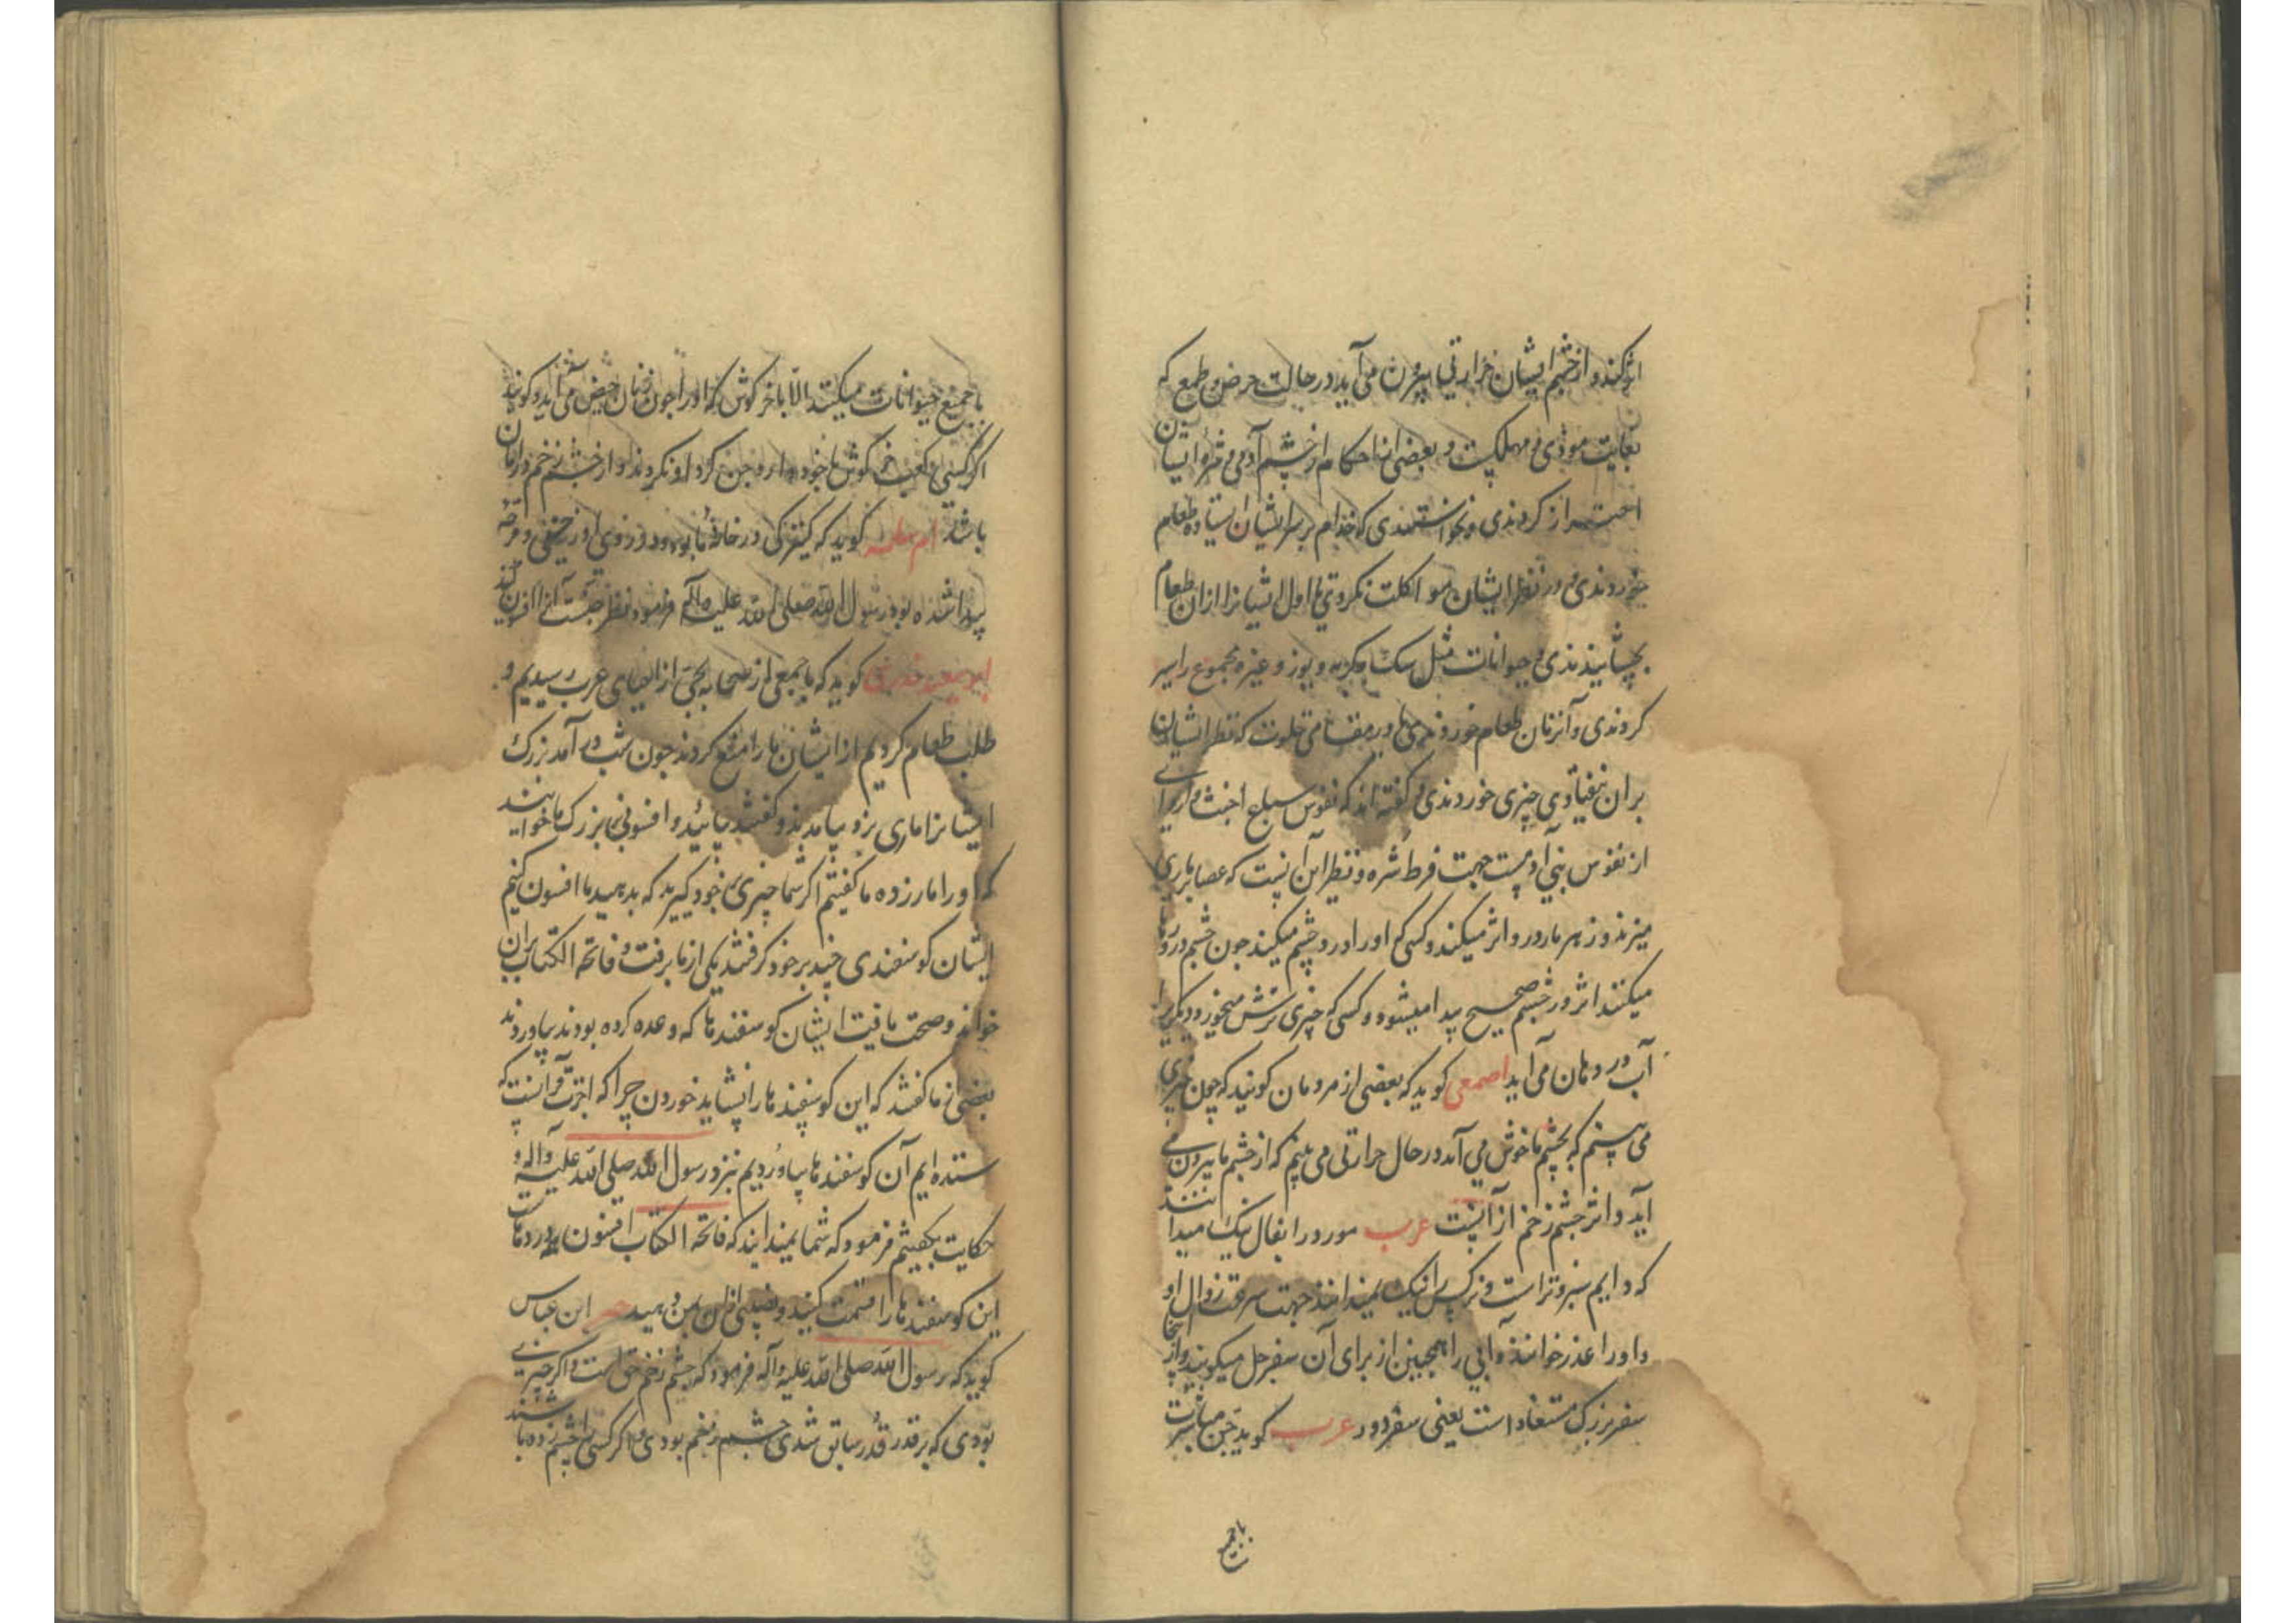 اثر کند و از چشم ایشان حرارتی بیرون می آید در حالت حرص و طمع که
بغایت موذی و مهلکست و بعضی از حکام از چشم آدمی و حیوانات
احتراز کردندی و نخواستندی که خدام بر سر ایشان ایستاده طعام
خوردندی و در نظر ایشان مواکلت نکردی یا اول ایشانرا از ان طعام
بچشانیدندی و حیوانات مثل سک و کربه و یوز و غیره مجموع را سیر
کردندی و آنزمان طعام خوردندی یا در مقامی خلوت که نظر ایشان
بران نیفتادی چیزی خوردندی و کفته اند که نفوس سباع اخبث و
از نفوس بنی آدمست جهت فرط شره و نظیر این آن نیست که عصا بر ماری
میزند و زهر مار در و اثر میکند و کسی که او را درد چشم میکند چون چشم در و
میکنند اثر در چشم صحیح پیدا میشود و کسی که چیزی ترش میخورد دیکری را
آب در دهان می آید اصمعی کوید که بعضی از مردمان کویند که چون چیزی
می بینم که بچشم ما خوش می آمد در حال حرارتی می بینم که از چشم ما بیرون می
آید و اثر چشم زخم از آنست عرب مورد را بفال نیک میدانند
که دایم سبز و تر است و نرکس را نیک نمیدانند جهت سرعت زوال او
و او را عذر خوانند و آبی را همچنین از برای آن سفرجل میکویند و از آنجا
سفر بزرک مستفاد است یعنی سفر دور عرب کوید جن مباشرت
با جمیع
با جمیع حیوانات میکنند الا با خرکوش که او را چون زنان حیض می آید و کویند
اکر کسی کعب خرکوش با خود دارد جن کرد او نکردند و از چشم زخم در امان
باشد ام سلمه کوید که کنیزکی در خانه ما بود و در روی او زخمی و قرحه
پیدا شده بود رسول الله صلی الله علیه و آله فرمود نظر جنست آنرا افسون کنند
ابو سعید خدری کوید که با جمعی از صحابه بحی از احیای عرب رسیدیم و
طلب طعام کردیم از ایشان ما را منع کردند چون شب در آمد بزرک
ایشانرا ماری بزد بیامدند و کفتند بیائید و افسونی بر بزرک ما خوانید
که او را مار زده ما کفتیم اکر شما چیزی بر خود کیرید که بدهید ما افسون کنیم
ایشان کوسفندی چند بر خود کرفتند یکی از ما برفت و فاتحة الکتاب بران
خواند و صحت یافت ایشان کوسفندها که وعده کرده بودند بیاوردند
بعضی از ما کفتند که این کوسفندها را نشاید خوردن چرا که اجرت قرآنست که
ستده ایم آن کوسفندها بیاوردیم نزد رسول الله صلی الله علیه و آله و
حکایت بکفتیم فرمود که شما نمیدانید که فاتحة الکتاب افسون همه دردهاست
این کوسفندها را قسمت کنید و نصیبی از ان بمن دهید خبر ابن عباس
کوید که رسول الله صلی الله علیه و آله فرمود که چشم زخم حق است و اکر چیزی
بودی که بر قدر قدر سابق شدی چشم زخم بودی و اکر کسی را چشم زده باشند